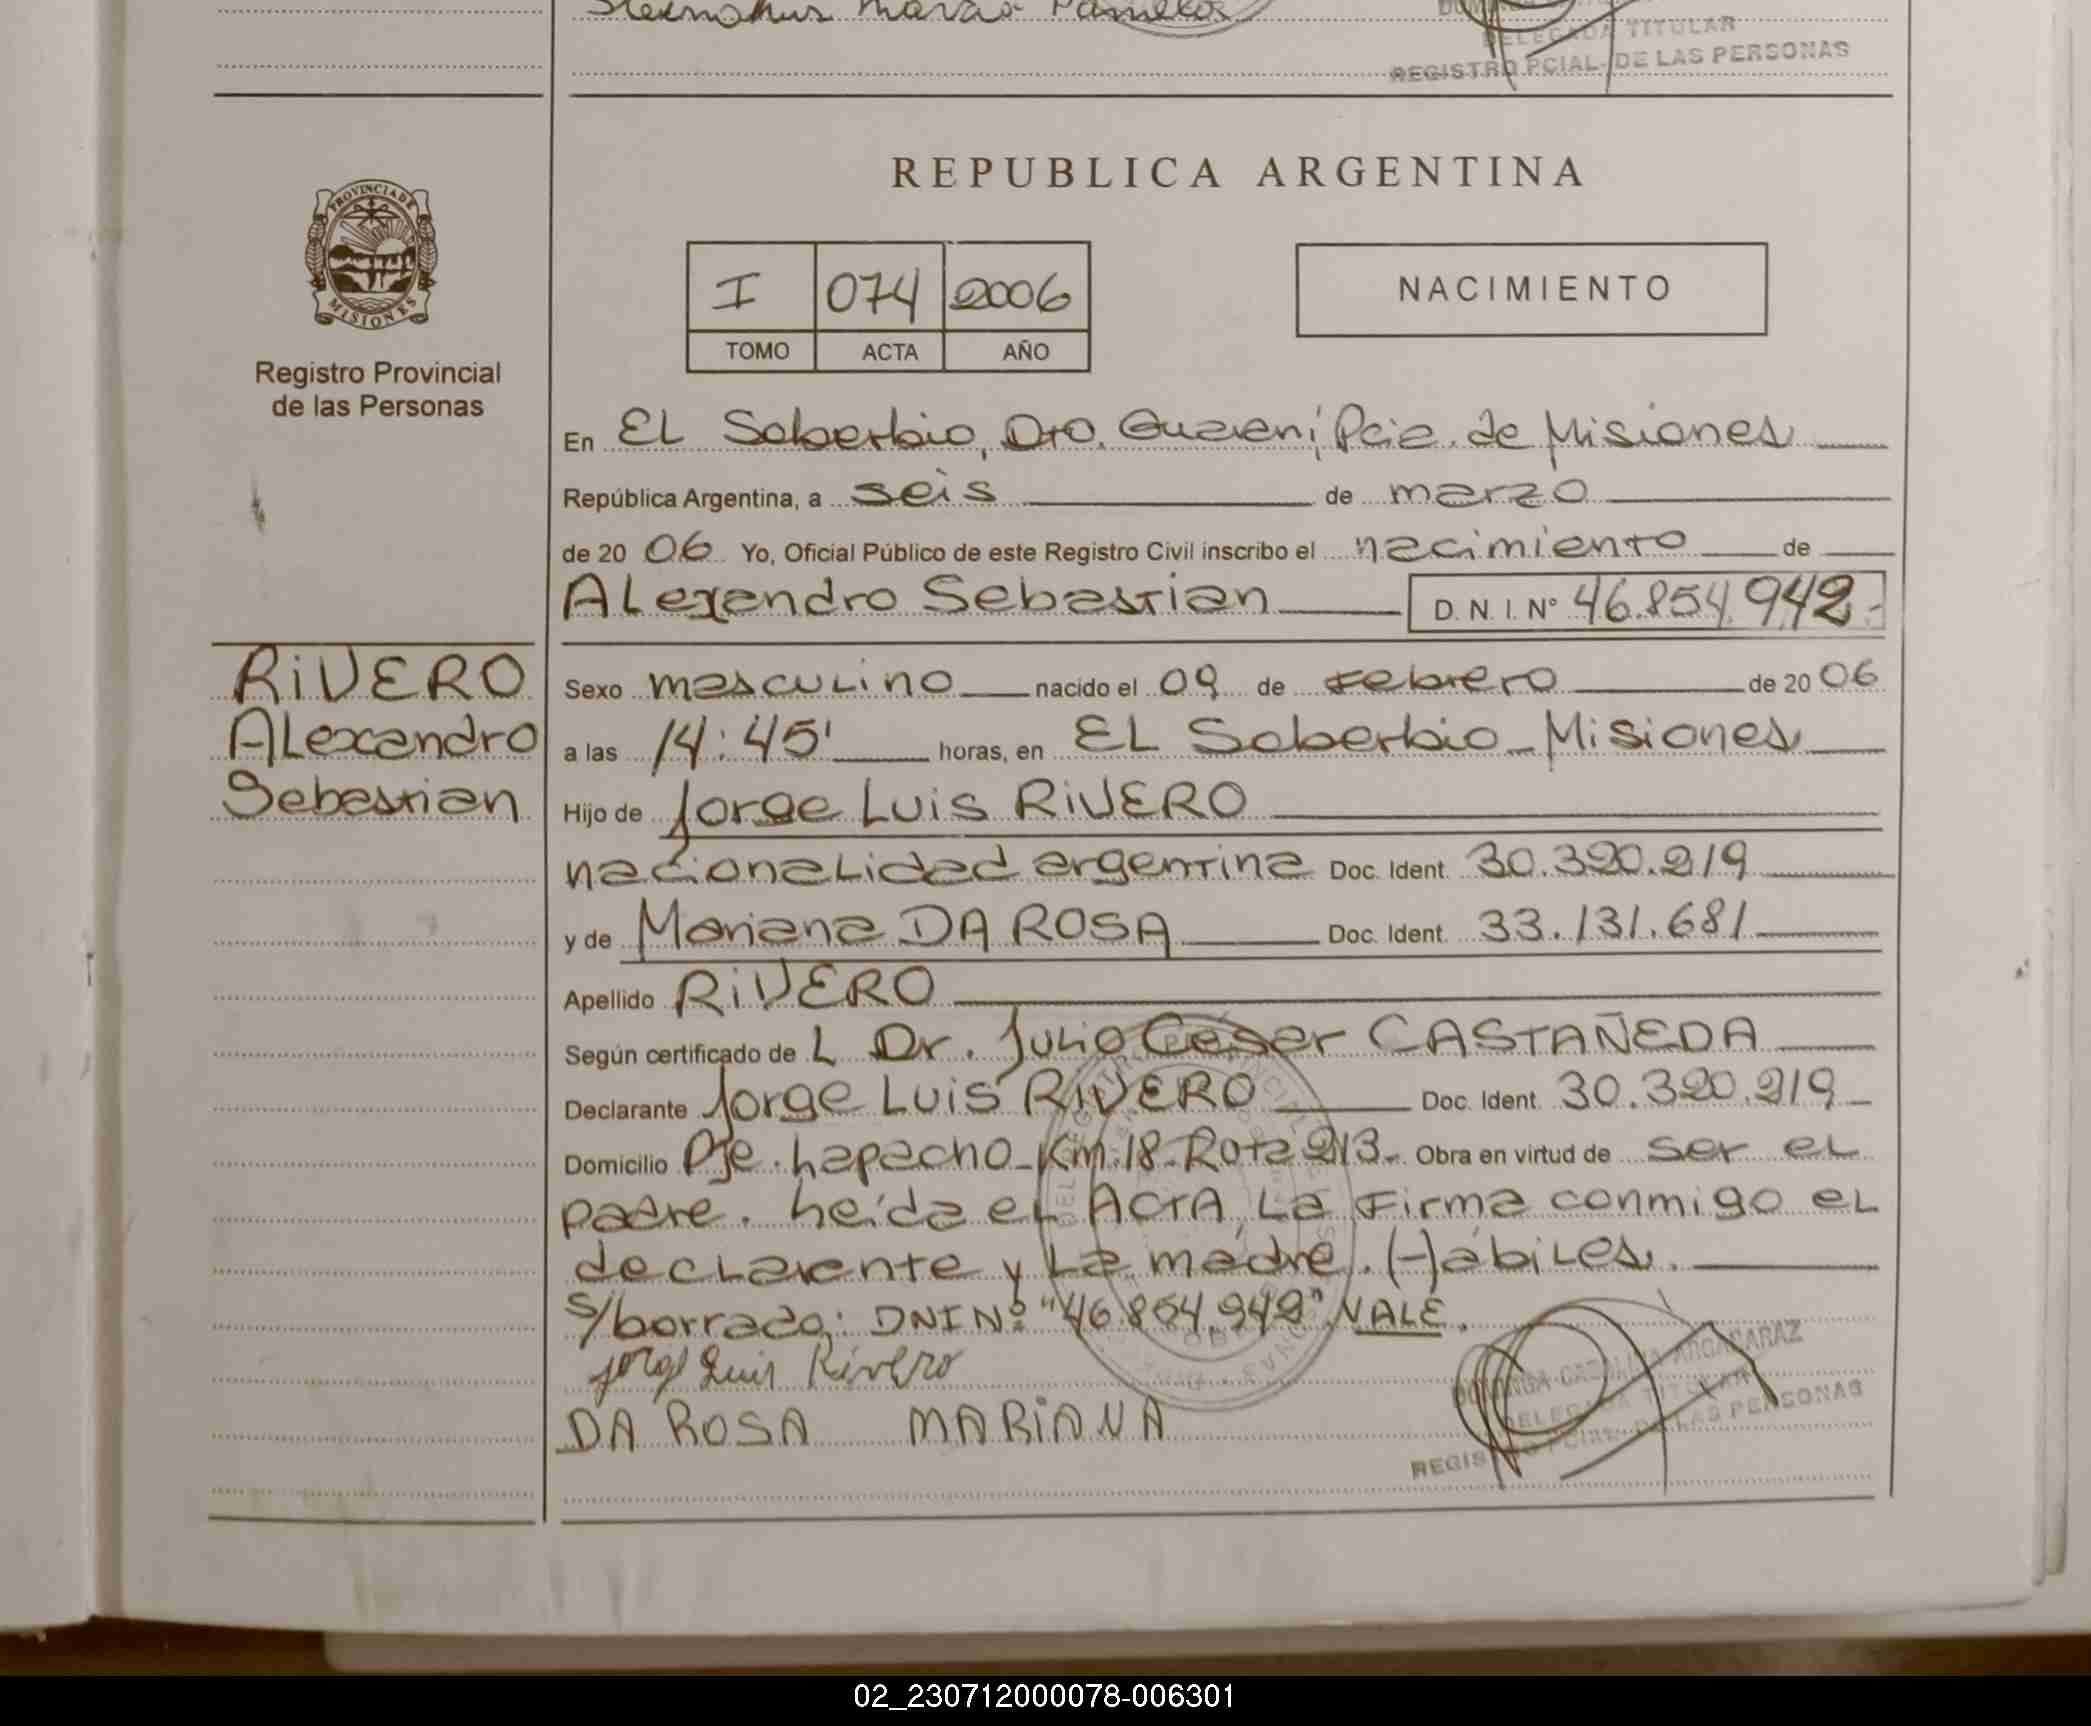 Maria
DELEGADA TITULAR
REGISTRO PCIAL. DE LAS PERSONAS
PROVINCIA DE
MISIONES
Registro Provincial
de las Personas
REPUBLICA ARGENTINA
I 074 2006
TOMO ACTA AÑO
NACIMIENTO
En EL Soberbio, Dto. Guarani, Pcia. de Misiones
República Argentina, a seis de marzo
de 20 06 Yo, Oficial Público de este Registro Civil inscribo el nacimiento de
ALexandro Sebastian D. N. I. Nº 46.854.942.-
RiVERO
ALexandro
Sebastian
Sexo masculino nacido el 09 de Febrero de 20 06
a las 14:45' horas, en EL Soberbio - Misiones
Hijo de Jorge Luis RiVERO
nacionalidad argentina Doc. Ident. 30.320.219
y de Mariana DA ROSA Doc. Ident. 33.131.681
Apellido RiVERO
Según certificado de L Dr. Julio Cesar CASTAÑEDA
Declarante Jorge Luis RiVERO Doc. Ident. 30.320.219
Domicilio Pje. Lapacho - Km. 18 - Ruta 213. Obra en virtud de ser el
padre. Leida el ACTA, La Firma conmigo el
declarante y La madre. Hábiles.
S/borrado: DNI Nº "46.854.942" VALE.
Jorge Luis Rivero
DA ROSA MARiANA
DOMINGA CATALINA ARGAÑARAZ
DELEGADA TITULAR
REGISTRO PCIAL. DE LAS PERSONAS
02_230712000078-006301